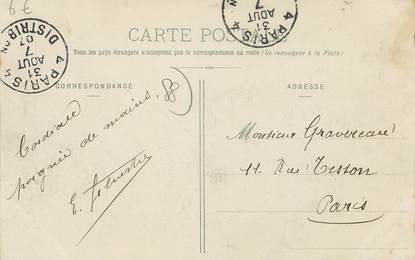 6€
CARTE POSTALE
Tous les pays étrangers n'acceptent pas la correspondance au recto (Se renseigner à la Poste)
PARIS 4
DISTRIB ON
7
31
AOUT
07
4 PARIS 4
7
31
AOUT
CORRESPONDANCE
ADRESSE
88
Cordiale
poignée de mains,
E. Silvestre
Monsieur Gravereau
11 Rue Tesson
Paris